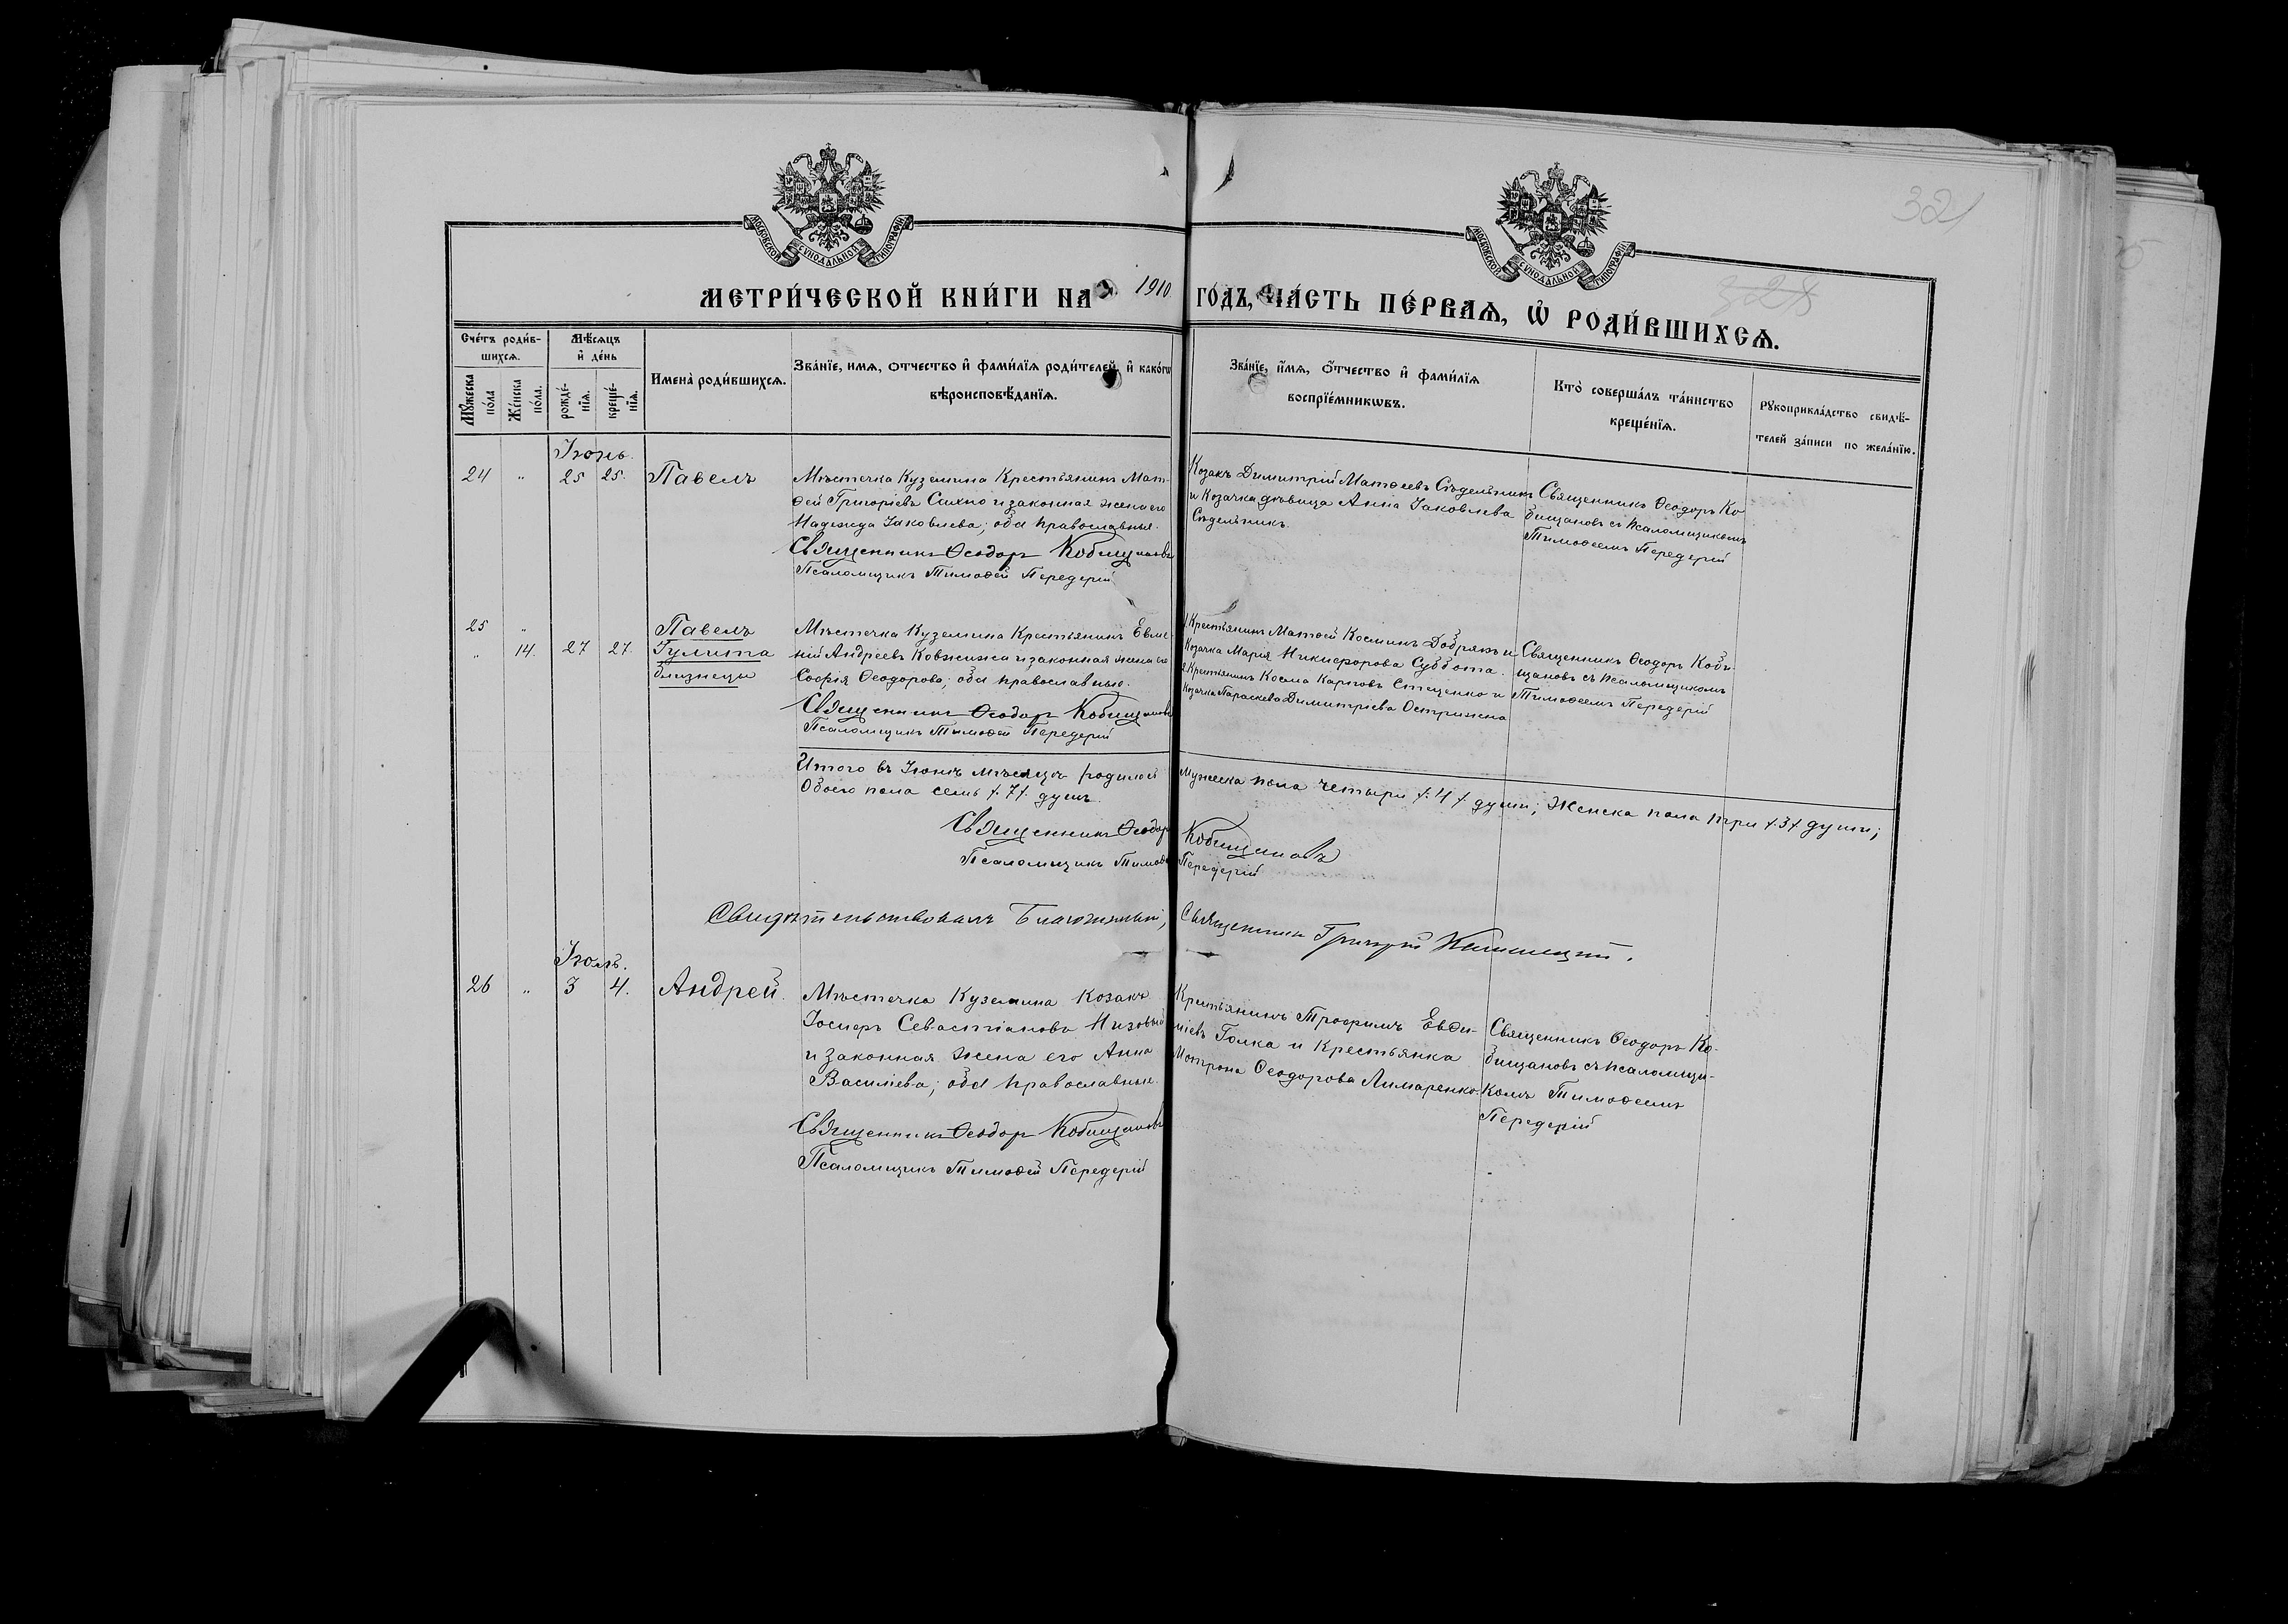 321
328
МОСКОВСКОЙ СѴНОДАЛЬНОЙ ТИПОГРАФІИ
МОСКОВСКОЙ СѴНОДАЛЬНОЙ ТИПОГРАФІИ
МЕТРИ́ЧЕСКОЙ КНИ́ГИ НА 1910 ГО́ДЪ, ЧА́СТЬ ПЕ́РВАѦ, Ѡ҆ РОДИ́ВШИХСѦ.
Сче́тъ роди́в-
шихсѧ.
Мꙋ́жеска по́ла
Же́нска по́ла.
Мѣ́сѧцъ
и҆ де́нь
рожде́-
нїѧ.
креще́-
нїѧ.
Имена̀ роди́вшихсѧ.
Зва́нїе, имѧ, отчество и҆ фами́лїѧ роди́телей, и҆ како́гѡ
вѣроисповѣ́данїѧ.
Зва́нїе, и҆́мѧ, о҆́тчество и҆ фами́лїѧ
воспрїе́мникѡвъ.
Кто̀ соверша́лъ та́инство
креще́нїѧ.
Рꙋкоприкла́дство свидѣ́-
телей за́писи по жела́нїю.
Іюнь.
24 " 25 25. Павелъ
Мѣстечка Куземина Крестьянинъ Мат-
ѳей Григоріевъ Сахно и законная жена его
Надежда Іаковлева; оба православные.
Священникъ Ѳеодоръ Кобищановъ
Псаломщикъ Тимоѳей Передерій
Козакъ Димитрій Матѳеевъ Сѣдельникъ
и Козачка дѣвица Анна Іаковлева
Сѣдельникъ.
Священникъ Ѳеодоръ Ко-
бищановъ съ псаломщикомъ
Тимоѳеемъ Передерій
25 "
" 14. 27 27.
Павелъ
Іулита
близнецы
Мѣстечка Куземина Крестьянинъ Евме-
ній Андреевъ Ковжижа и законная жена его
Софія Ѳеодорова; оба православные.
Священникъ Ѳеодоръ Кобищановъ
Псаломщикъ Тимоѳей Передерій
1. Крестьянинъ Матѳей Косминъ Добрякъ и
Козачка Марія Никифорова Суббота.
2. Крестьянинъ Косма Карповъ Стеценко и
Козачка Параскева Димитріева Острижна
Священникъ Ѳеодоръ Коби-
щановъ съ псаломщикомъ
Тимоѳеемъ Передерій
Итого въ Іюнѣ мѣсяцѣ родилось мужеска пола четыре /:4:/ души; Женска пола три /:3:/ души;
Обоего пола семь /:7:/ душъ.
Священникъ Ѳеодоръ Кобищановъ
Псаломщикъ Тимоѳей Передерій
Свидѣтельствовалъ Благочинный, Священникъ Григорій
Іюль.
26 " 3 4. Андрей.
Мѣстечка Куземина Козакъ
Іосифъ Севастіановъ Низовый
и законная жена его Анна
Василіева; оба православные.
Священникъ Ѳеодоръ Кобищановъ
Псаломщикъ Тимоѳей Передерій
Крестьянинъ Трофимъ Евѳи-
міевъ Голка и Крестьянка
Мотрона Ѳеодорова Лимаренко.
Священникъ Ѳеодоръ Ко-
бищановъ съ псаломщи-
комъ Тимоѳеемъ
Передерій